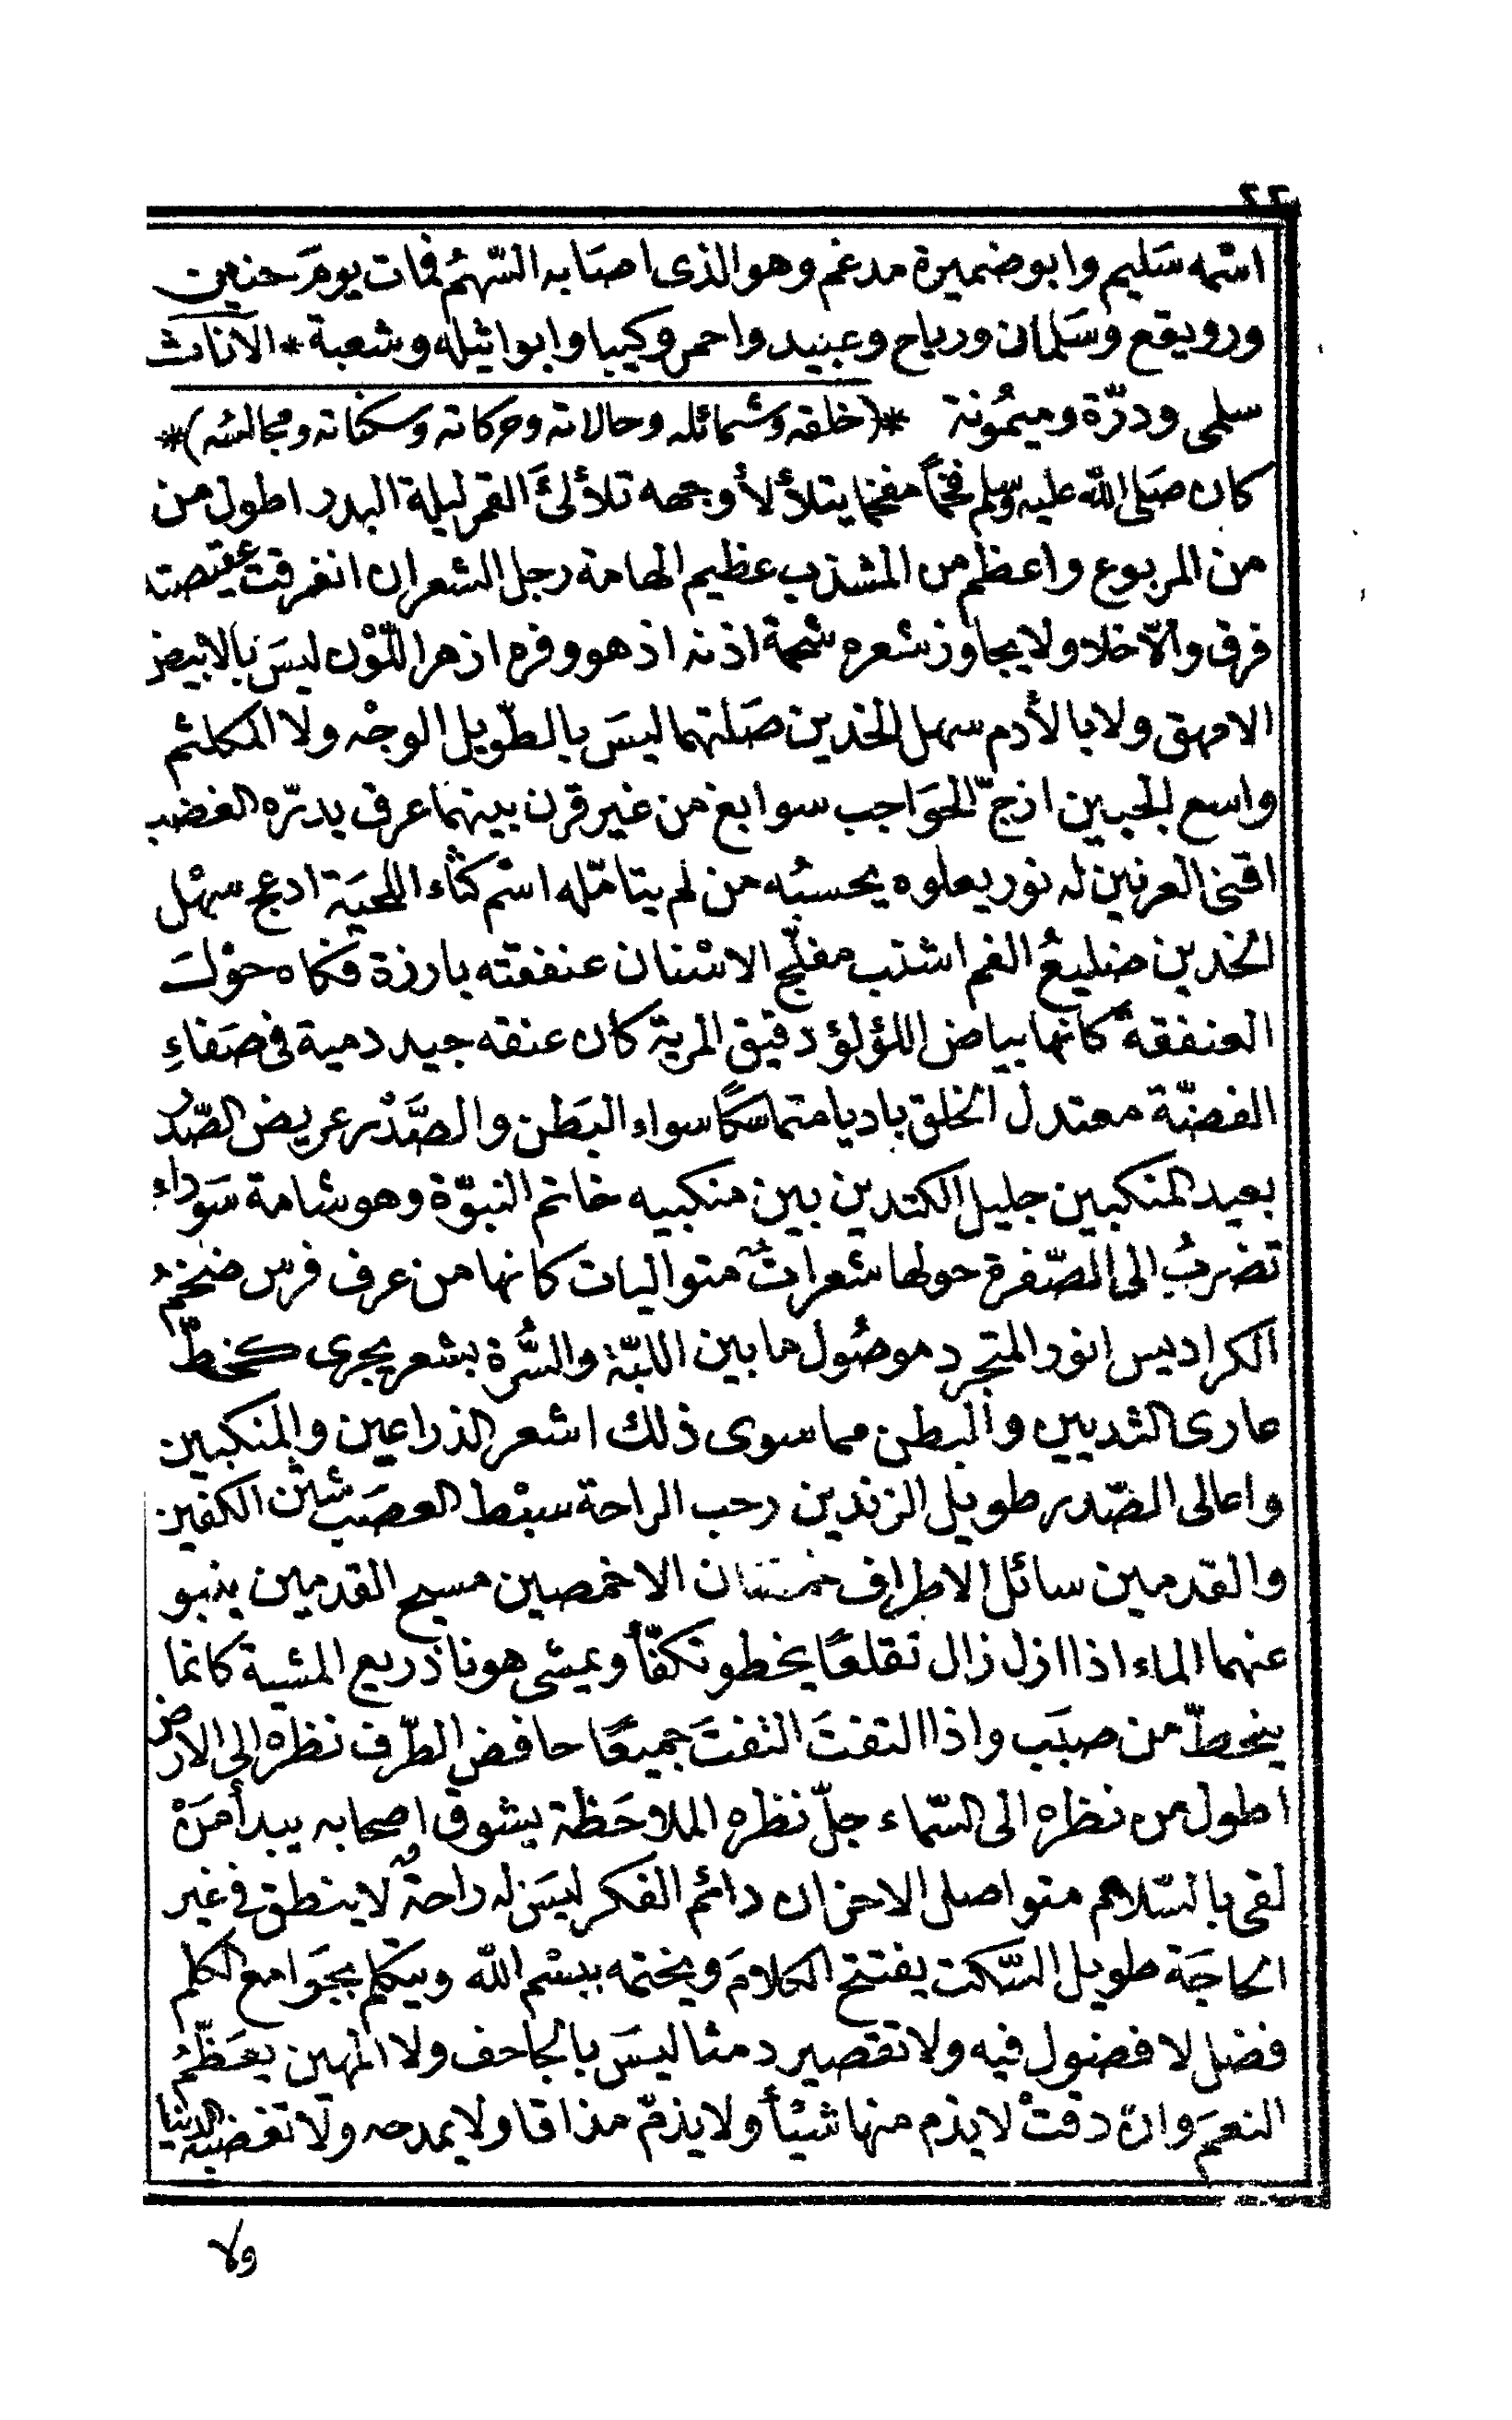 ٢٢
اسمه سَليم وابو ضميرة مدغم وهو الذى اصَابه السّهمُ فمات يومَ حنين
ورويقع وسَلمان ورياح وعبيد واحمر وكيبا وابواثيله وشعبة * الاناث
سلمى ودرّة وميمُونة *(خلقه وشمائله وحالاته وحركاته وسكناته ومجالسُه)*
كان صَلى الله عليه وسّلم فخمًا مفخما يتلألأ وجهه تلألئَ القمر ليلة البدر اطول من
من المربوع واعظم من المشذب عظيم الهامة رجل الشعر ان انفرقت عقيصته
فرق والّا خلا ولا يجاوز شعره شحمة اذنه اذ هو وفره ازهر اللّوْن ليسَ بالابيض
الامهق ولا بالأدم سهل الخدين صَلتهما ليسَ بالطّويل الوجْه ولا المكلثم
واسع الجبين ازجّ الحوَاجب سوابغ من غير قرن بينهما عرق يدرّه الغضب
اقنى العرنين له نور يعلوه يحسبُه من لم يتامّله اشم كثّاء اللحيَة ادعج سهْل
الخدين ضليعُ الفم اشنب مفلّج الاسْنان عنفقته بارزة فكاه حوْل
العنفقة كانها بياض اللؤلؤ دقيق المربة كأن عنقه جيد دمية فى صَفاءِ
الفضّة معتدل الخلق باديا متماسكًا سواء البَطن والصَّدْر عريض الصّدر
بعيد المنكبين جليل الكتدين بين منكبيه خاتم النبوّة وهو شامة سَوداء
تضربُ الى الصّفرة حولها شعراتٌ متواليات كانها من عرف فرس ضخمُ
الكراديس انور المتجرد موصُول ما بين اللبّة والسُّرة بشعر يجرى كخطّ
عارى الثديين والبطن مما سوى ذلك اشعر الذراعين والمنكبين
واعالى الصّدر طويل الزندين رحب الراحة سبْط العصَب شثن الكفين
والقدمين سائل الاطراف خمصان الاخمصين مسيح القدمين ينبو
عنهما الماء اذا ازل زال تقلعًا يخطو تكفّأ ويمشى هونا ذريع المشية كانما
ينحطّ من صبَب واذا التفتَ التفتَ جميعًا حافض الطّرف نظره الى الارض
اطول من نظره الى السّماء جلّ نظره الملاحَظة يشوق اصحابه يبدأ مَنْ
لقى بالسّلام متواصل الاحزان دائم الفكر ليسَ له راحةٌ لا ينطق فى غير
الحاجَة طويل السّكت يفتتح الكلامَ ويختمه ببسْم الله ويتكلم بجوَامع الكلم
فضل لا فضول فيه ولا تقصير دمثا ليسَ بالجاحف ولا المهين يعَظّمُ
النعمَ وان دقتْ لا يذم منها شيئأ ولا يذمّ مذاقا ولا يمدحه ولا تغضبه الدنيا
ولا